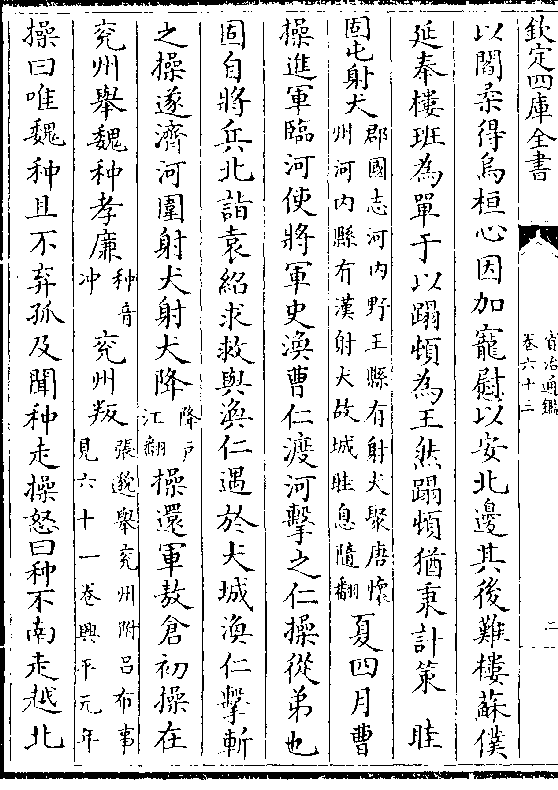 欽定四庫全書
資治通鑑
卷六十三
二
以閻柔得烏桓心因加寵慰以安北邊其後難樓蘇僕
延奉樓班為單于以蹋頓為王然蹋頓猶秉計策 眭
固屯射犬郡國志河内野王縣有射犬聚唐懷
州河内縣有漢射犬故城眭息隨翻夏四月曹
操進軍臨河使將軍史渙曹仁渡河擊之仁操從弟也
固自將兵北詣袁紹求救與渙仁遇於犬城渙仁擊斬
之操遂濟河圍射犬射犬降降戸
江翻操還軍敖倉初操在
兖州舉魏种孝廉种音
冲兖州叛張邈舉兖州附吕布事
見六十一卷興平元年
操曰唯魏种且不弃孤及聞种走操怒曰种不南走越北